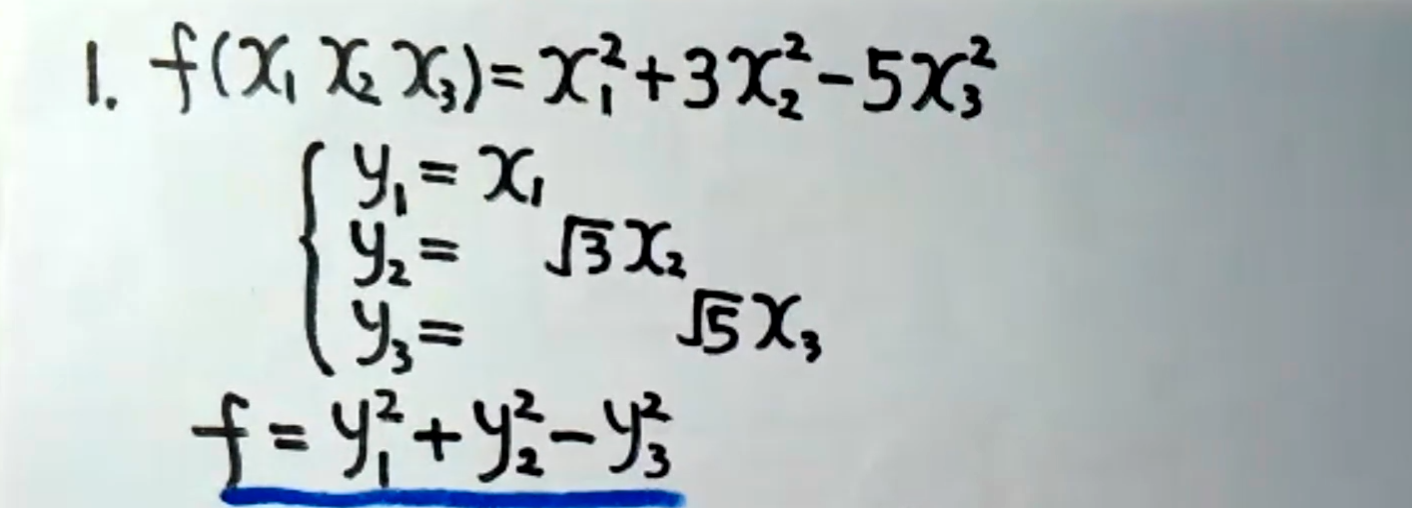 1. f(x₁ x₂ x₃)=x₁²+3x₂²-5x₃²
y₁=x₁
y₂= √3x₂
y₃= √5x₃
f=y₁²+y₂²-y₃²